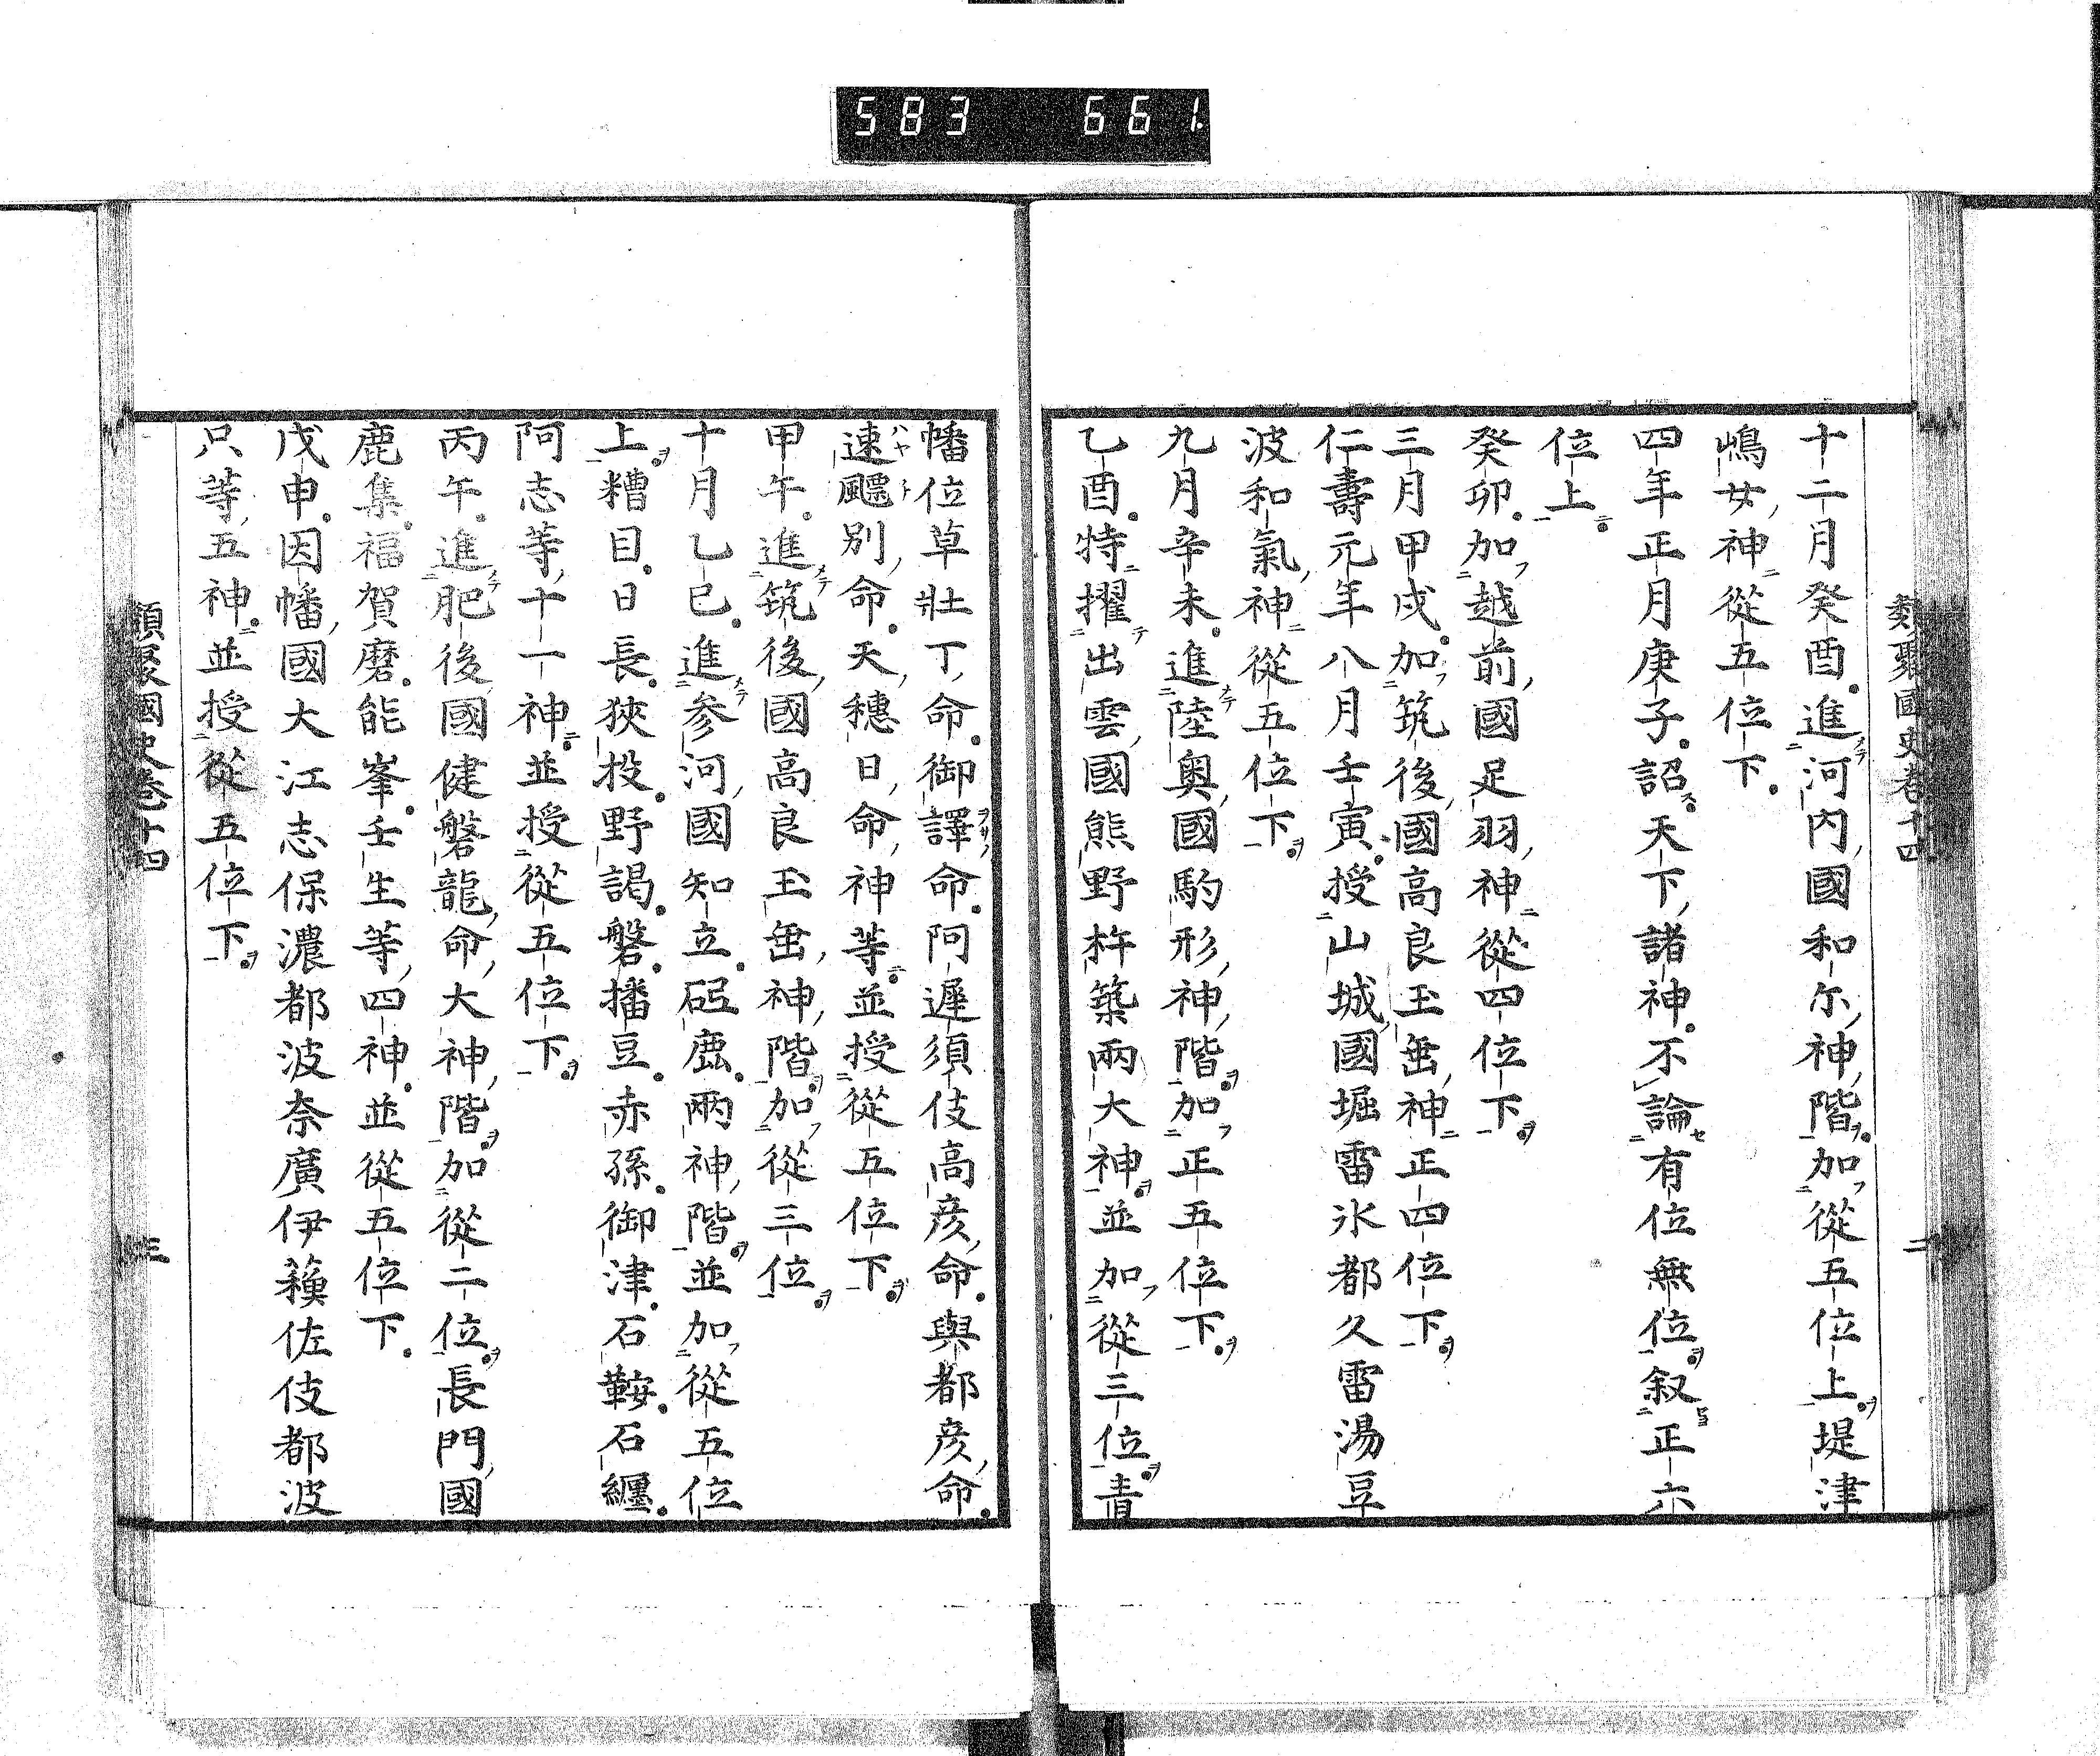 583 661.
類聚國史卷十四
二
十二月癸酉進河內國和尓神階加從五位上堤津
嶋女神從五位下
四年正月庚子詔天下諸神不論有位無位叙正六
位上
癸卯加越前國足羽神從四位下
三月甲戌加筑後國高良玉垂神正四位下
仁壽元年八月壬寅授山城國堀雷氷都久雷湯豆
波和氣神從五位下
九月辛未進陸奧國駒形神階加正五位下
乙酉特擢出雲國熊野杵築兩大神並加從三位青
幡位草壯丁命御譯命阿遲須伎高彦命與都彦命
速飄別命天穗日命神等並授從五位下
甲午進筑後國高良玉垂神階加從三位
十月乙巳進参河國知立砥鹿兩神階並加從五位
上糟目日長狹投野謁磐播豆赤孫御津石鞍石纏
阿志等十一神並授從五位下
丙午進肥後國健磐龍命大神階加從二位長門國
鹿集福賀磨能峯壬生等四神並從五位下
戊申因幡國大江志保濃都波奈廣伊蘓佐伎都波
只等五神並授從五位下
類聚國史卷十四
三